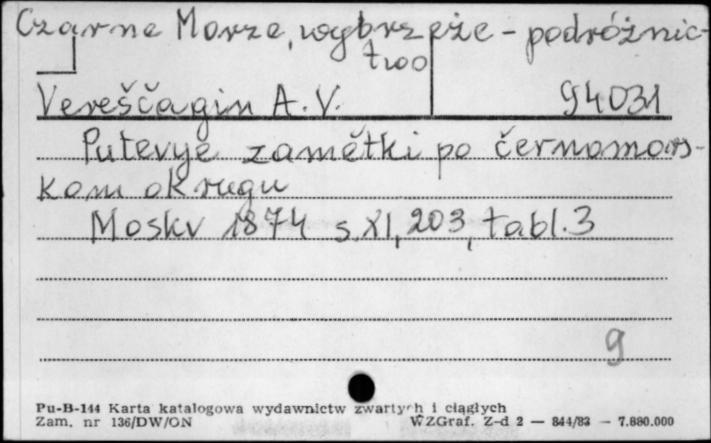 Czarne Morze, wybrzeże - podróżnic-
two
Vereščagin A. V. 94031
Putevye zamětki po černomors-
kom okrugu
Moskv 1874 s. XI, 203, tabl. 3
9
Pu-B-144 Karta katalogowa wydawnictw zwartych i ciągłych
Zam. nr 136/DW/ON WZGraf. Z-d 2 — 844/83 — 7.880.000